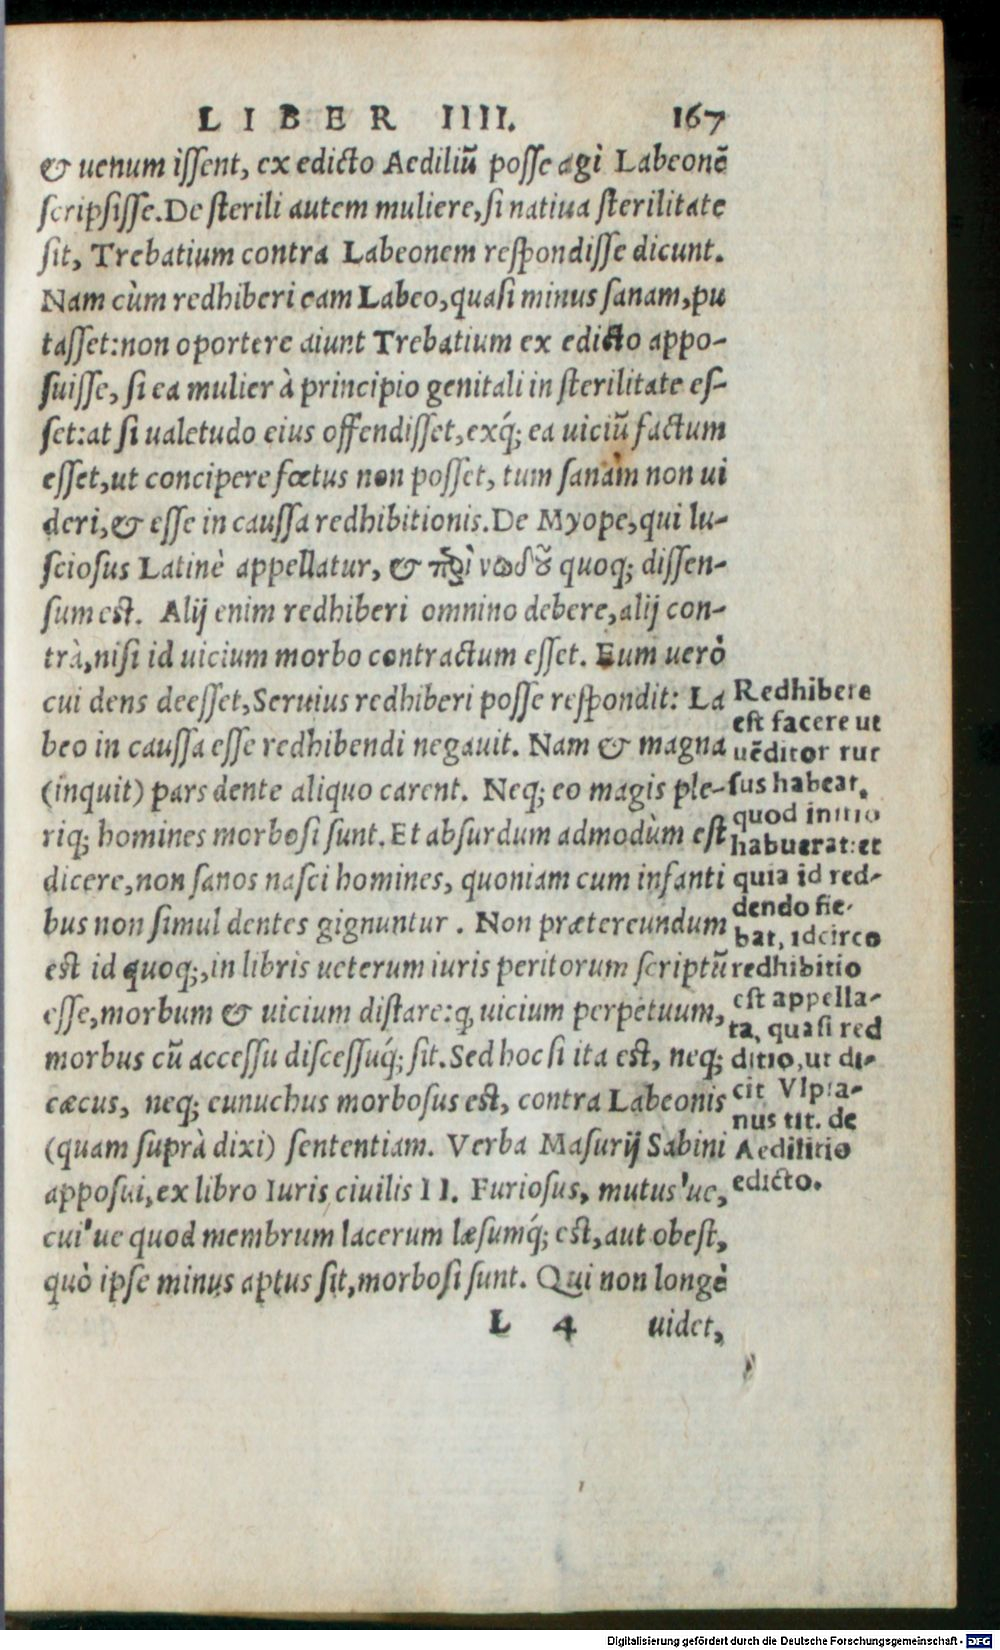 LIBER IIII. 167
& uenum issent, ex edicto Aediliũ posse agi Labeonẽ
scripsisse. De sterili autem muliere, si natiua sterilitate
sit, Trebatium contra Labeonem respondisse dicunt.
Nam cùm redhiberi eam Labeo, quasi minus sanam, pu
tasset: non oportere aiunt Trebatium ex edicto appo-
suisse, si ea mulier à principio genitali in sterilitate es-
set: at si ualetudo eius offendisset, exq́; ea uiciũ factum
esset, ut concipere fœtus non posset, tum sanam non ui
deri, & esse in caussa redhibitionis. De Myope, qui lu-
sciosus Latinè appellatur, & quoq; dissen-
sum est. Alij enim redhiberi omnino debere, alij con-
trà, nisi id uicium morbo contractum esset. Eum uerò
cui dens deesset, Seruius redhiberi posse respondit: La
beo in caussa esse redhibendi negauit. Nam & magna
(inquit) pars dente aliquo carent. Neq; eo magis ple-
riq; homines morbosi sunt. Et absurdum admodùm est
dicere, non sanos nasci homines, quoniam cum infanti
bus non simul dentes gignuntur. Non prætereundum
est id quoq;, in libris ueterum iuris peritorum scriptũ
esse, morbum & uicium distare: q̃ uicium perpetuum,
morbus cũ accessu discessuq́; sit. Sed hoc si ita est, neq;
cæcus, neq; eunuchus morbosus est, contra Labeonis
(quam suprà dixi) sententiam. Verba Masurij Sabini
apposui, ex libro Iuris ciuilis II. Furiosus, mutus'ue,
cui'ue quod membrum lacerum læsumq́; est, aut obest,
quò ipse minus aptus sit, morbosi sunt. Qui non longè
L 4 uidet,
Redhibere
est facere ut
uẽditor rur
sus habeat,
quod initio
habuerat: et
quia id red-
dendo fie-
bat, idcirco
redhibitio
est appella-
ta, quasi red
ditio, ut di-
cit Vlpia-
nus tit. de
Aedilitio
edicto.
Digitalisierung gefördert durch die Deutsche Forschungsgemeinschaft - DFG